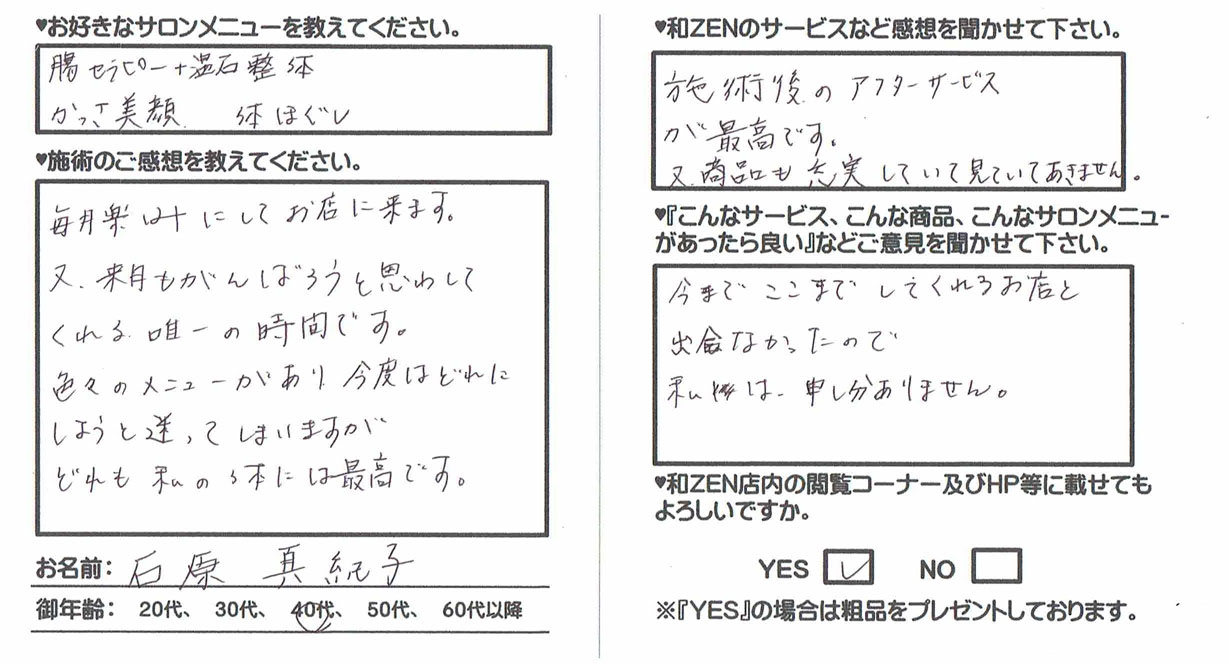 ♥お好きなサロンメニューを教えてください。
腸セラピー+温石整体
かっさ美顔 体ほぐし
♥施術のご感想を教えてください。
毎月楽しみにしてお店に来ます。
又、来月もがんばろうと思わして
くれる唯一の時間です。
色々のメニューがあり今度はどれに
しようと迷ってしまいますが
どれも私の体には最高です。
お名前: 石原 真紀子
御年齢: 20代、 30代、 40代、 50代、 60代以降
♥和ZENのサービスなど感想を聞かせて下さい。
施術後のアフターサービス
が最高です。
又、商品も充実していて見ていてあきません。
♥『こんなサービス、こんな商品、こんなサロンメニュー
があったら良い』などご意見を聞かせて下さい。
今までここまでしてくれるお店と
出会なかったので
私は、申し分ありません。
♥和ZEN店内の閲覧コーナー及びHP等に載せても
よろしいですか。
YES NO
※『YES』の場合は粗品をプレゼントしております。